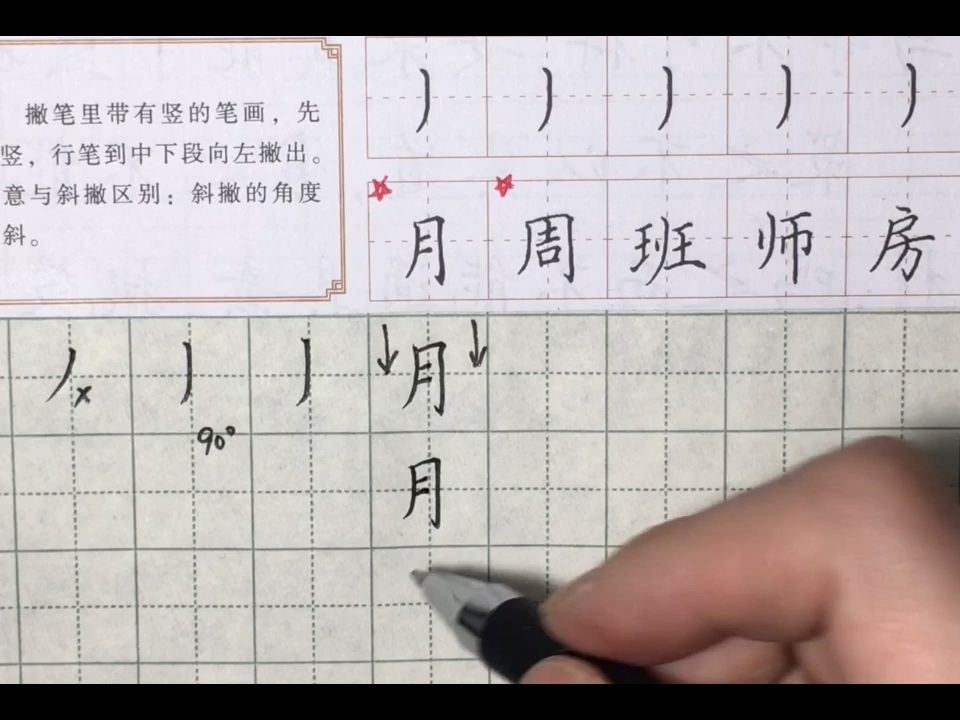 撇笔里带有竖的笔画，先
竖，行笔到中下段向左撇出。
意与斜撇区别：斜撇的角度
斜。
月 周 班 师 房
月
90°
月